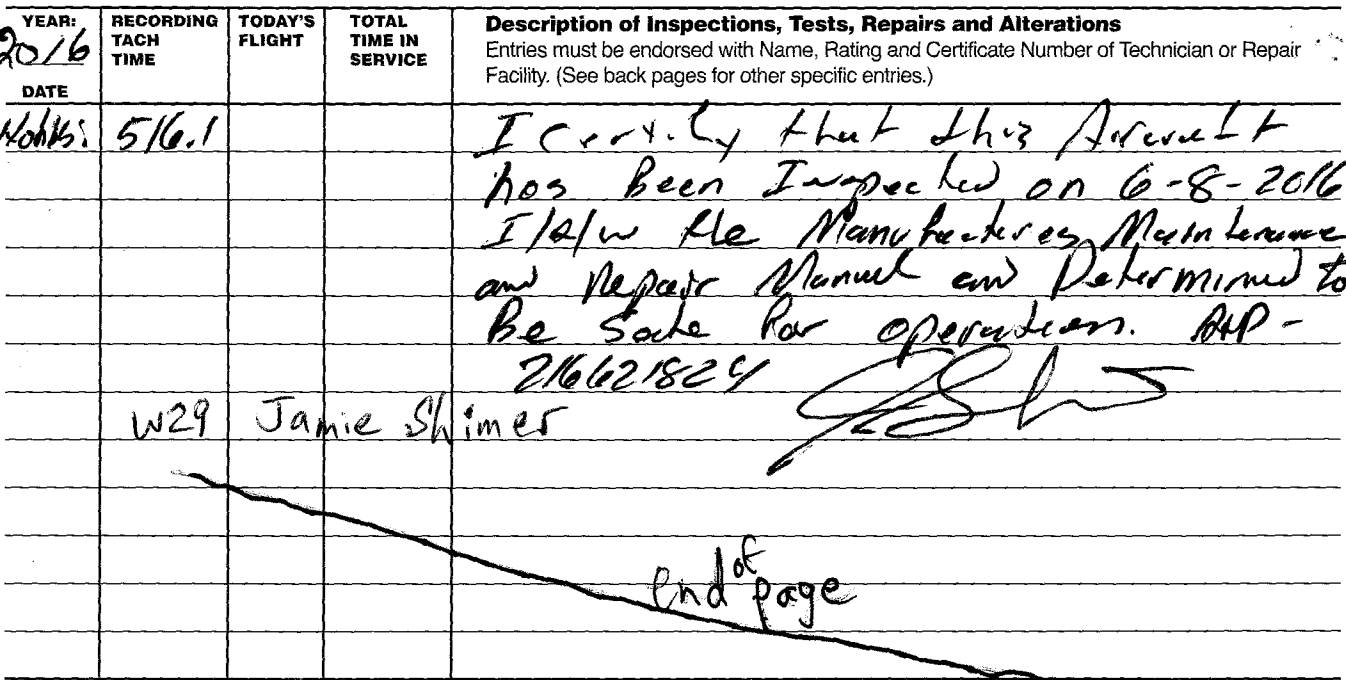 YEAR: 2016
DATE
RECORDING TACH TIME
TODAY'S FLIGHT
TOTAL TIME IN SERVICE
Description of Inspections, Tests, Repairs and Alterations
Entries must be endorsed with Name, Rating and Certificate Number of Technician or Repair
Facility. (See back pages for other specific entries.)
516.1 I certify that this Aircraft
has Been Inspected on 6-8-2016
I/A/W the Manufactures Maintenance
and Repair Manual and Determined to
Be Safe for operation. A&P-
216621824
W29 Jamie Shimer
end of page